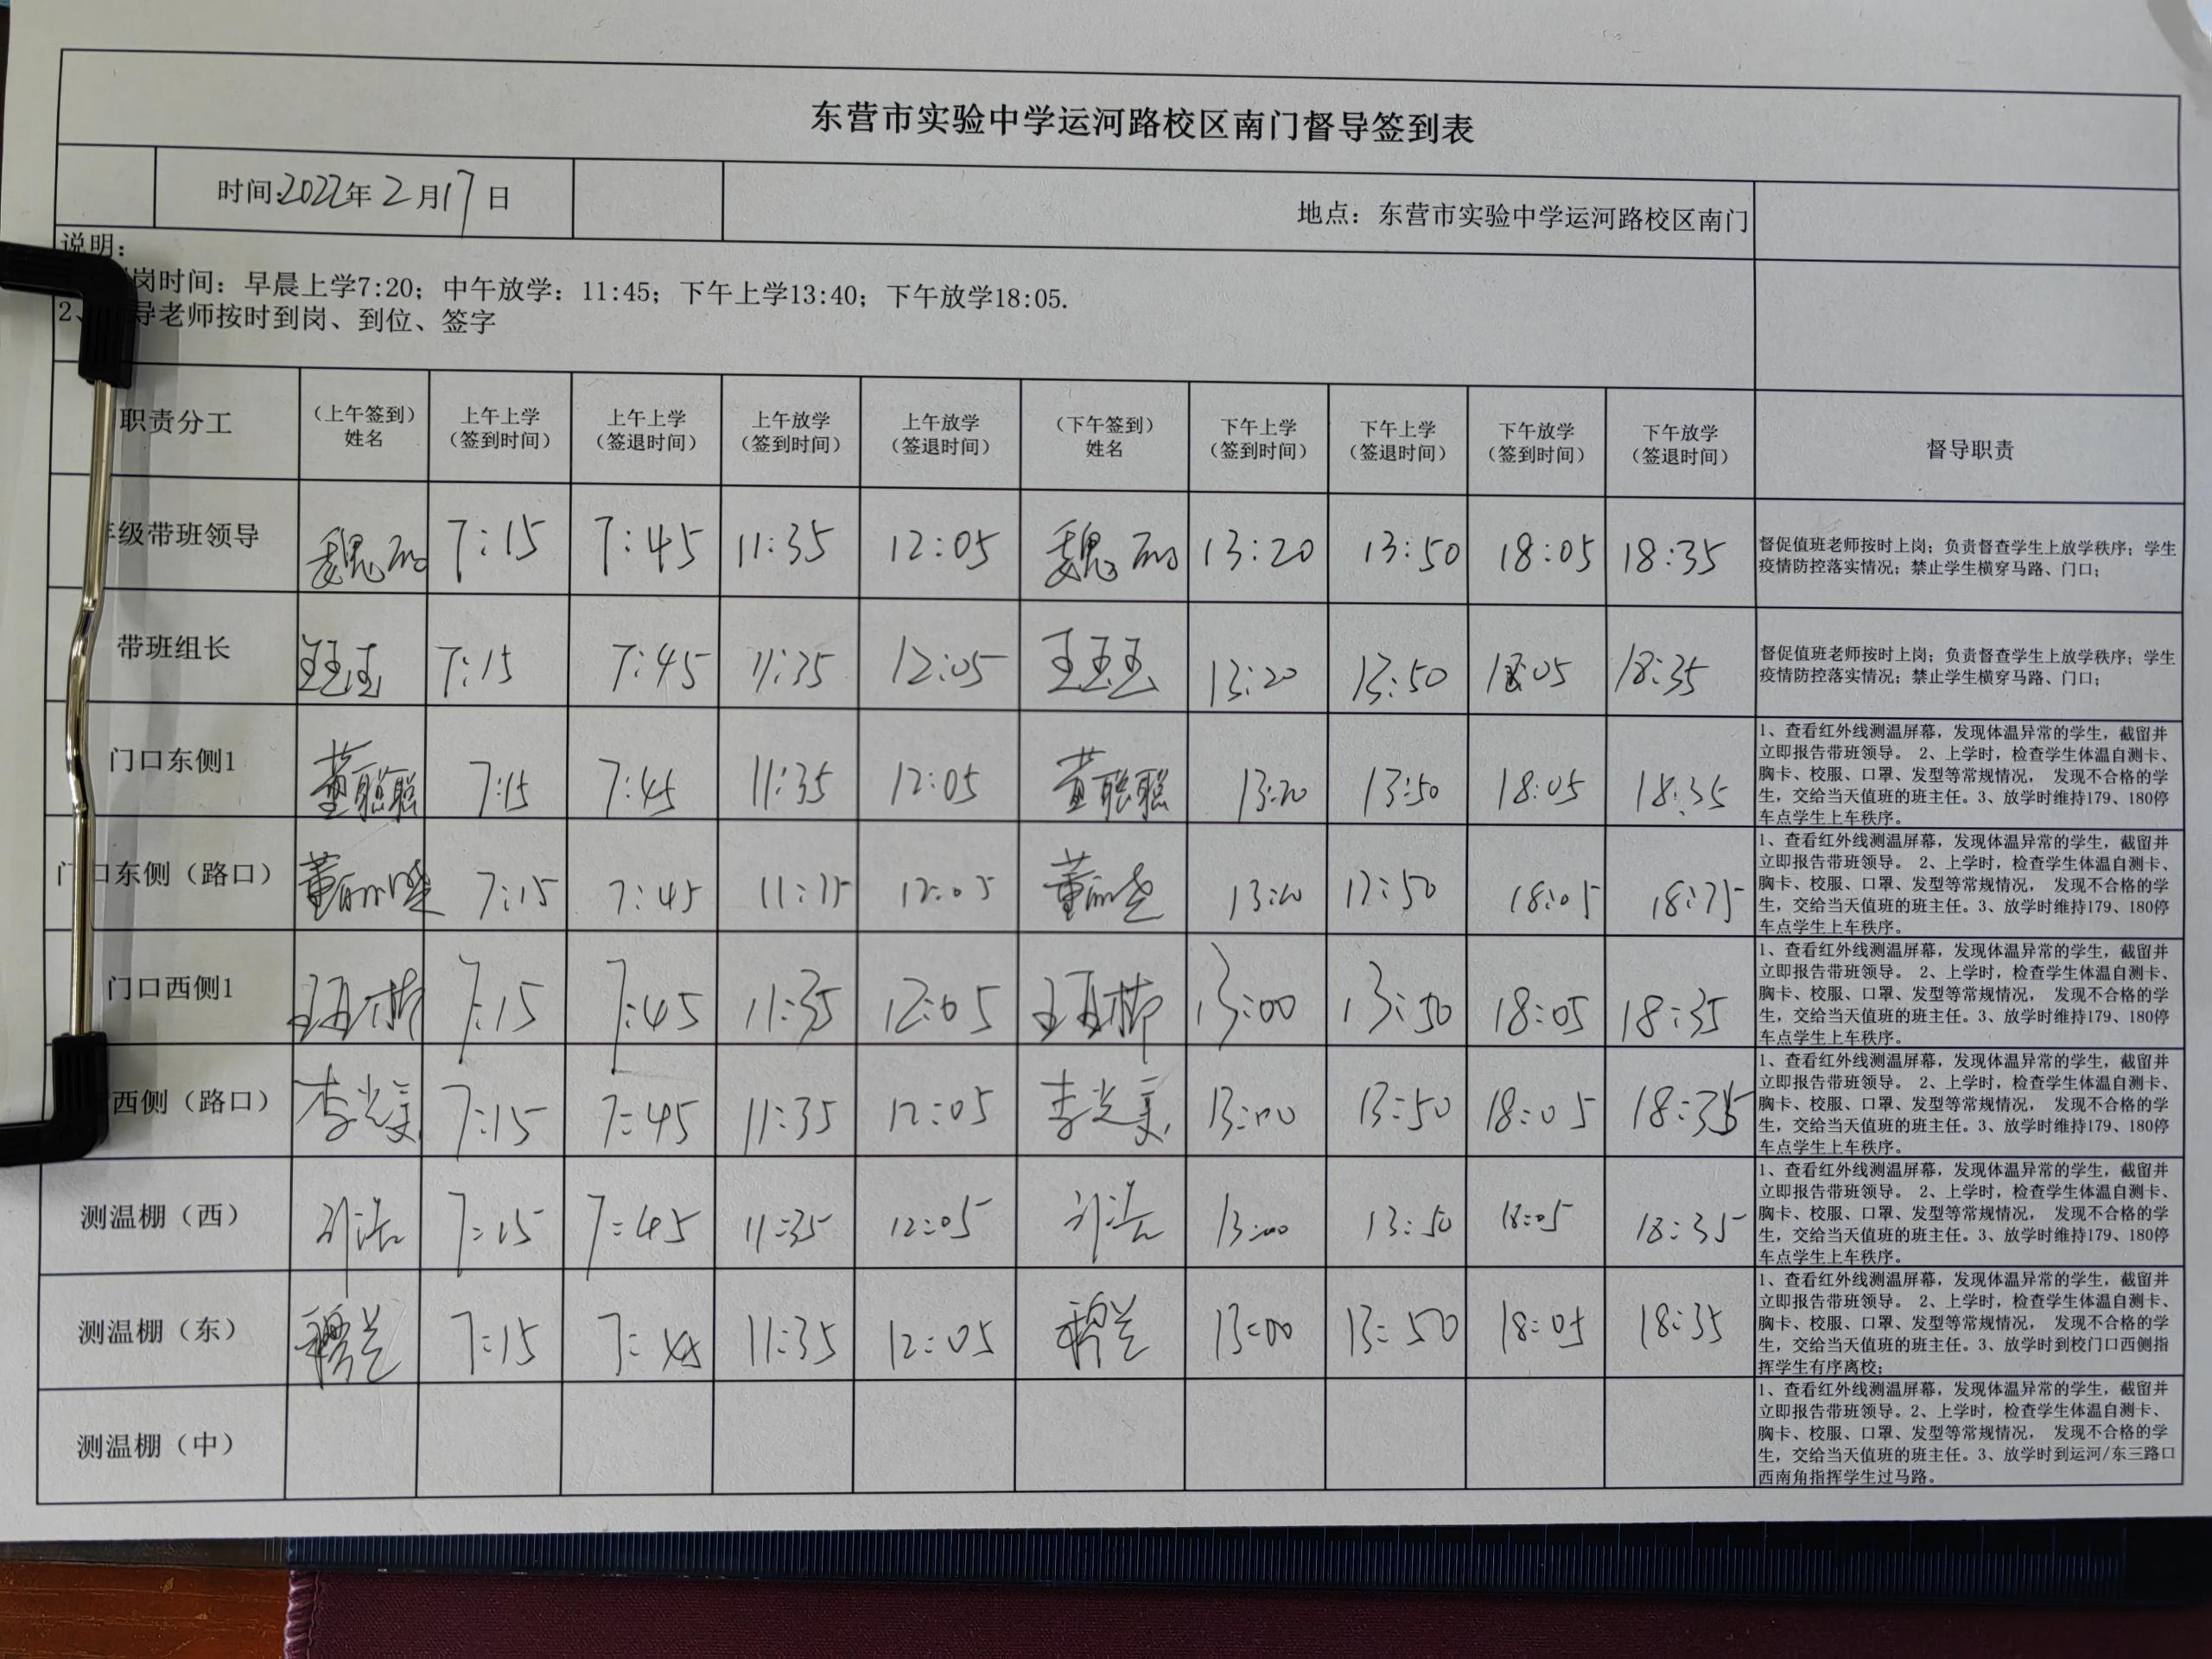 东营市实验中学运河路校区南门督导签到表
时间:2022年2月17日
地点：东营市实验中学运河路校区南门
说明：
岗时间：早晨上学7:20；中午放学：11:45；下午上学13:40；下午放学18:05.
2、 导老师按时到岗、到位、签字
职责分工 （上午签到）姓名 上午上学（签到时间） 上午上学（签退时间） 上午放学（签到时间） 上午放学（签退时间） （下午签到）姓名 下午上学（签到时间） 下午上学（签退时间） 下午放学（签到时间） 下午放学（签退时间） 督导职责
级带班领导 魏 7:15 7:45 11:35 12:05 魏 13:20 13:50 18:05 18:35
督促值班老师按时上岗；负责督查学生上放学秩序；学生
疫情防控落实情况；禁止学生横穿马路、门口；
带班组长 王玉玉 7:15 7:45 11:35 12:05 王玉玉 13:20 13:50 18:05 18:35
督促值班老师按时上岗；负责督查学生上放学秩序；学生
疫情防控落实情况；禁止学生横穿马路、门口；
门口东侧1 董聪聪 7:15 7:45 11:35 12:05 董聪聪 13:20 13:50 18:05 18:35
1、查看红外线测温屏幕，发现体温异常的学生，截留并
立即报告带班领导。 2、上学时，检查学生体温自测卡、
胸卡、校服、口罩、发型等常规情况， 发现不合格的学
生，交给当天值班的班主任。3、放学时维持179、180停
车点学生上车秩序。
门口东侧（路口） 董 7:15 7:45 11:35 12:05 董 13:20 13:50 18:05 18:35
1、查看红外线测温屏幕，发现体温异常的学生，截留并
立即报告带班领导。 2、上学时，检查学生体温自测卡、
胸卡、校服、口罩、发型等常规情况， 发现不合格的学
生，交给当天值班的班主任。3、放学时维持179、180停
车点学生上车秩序。
门口西侧1 王 7:15 7:45 11:35 12:05 王 13:00 13:50 18:05 18:35
1、查看红外线测温屏幕，发现体温异常的学生，截留并
立即报告带班领导。 2、上学时，检查学生体温自测卡、
胸卡、校服、口罩、发型等常规情况， 发现不合格的学
生，交给当天值班的班主任。3、放学时维持179、180停
车点学生上车秩序。
西侧（路口） 李光美 7:15 7:45 11:35 12:05 李光美 13:00 13:50 18:05 18:35
1、查看红外线测温屏幕，发现体温异常的学生，截留并
立即报告带班领导。 2、上学时，检查学生体温自测卡、
胸卡、校服、口罩、发型等常规情况， 发现不合格的学
生，交给当天值班的班主任。3、放学时维持179、180停
车点学生上车秩序。
测温棚（西） 7:15 7:45 11:35 12:05 13:00 13:50 18:05 18:35
1、查看红外线测温屏幕，发现体温异常的学生，截留并
立即报告带班领导。 2、上学时，检查学生体温自测卡、
胸卡、校服、口罩、发型等常规情况， 发现不合格的学
生，交给当天值班的班主任。3、放学时维持179、180停
车点学生上车秩序。
测温棚（东） 穆兰 7:15 7:45 11:35 12:05 穆兰 13:00 13:50 18:05 18:35
1、查看红外线测温屏幕，发现体温异常的学生，截留并
立即报告带班领导。 2、上学时，检查学生体温自测卡、
胸卡、校服、口罩、发型等常规情况， 发现不合格的学
生，交给当天值班的班主任。3、放学时到校门口西侧指
挥学生有序离校；
测温棚（中）
1、查看红外线测温屏幕，发现体温异常的学生，截留并
立即报告带班领导。2、上学时，检查学生体温自测卡、
胸卡、校服、口罩、发型等常规情况， 发现不合格的学
生，交给当天值班的班主任。3、放学时到运河/东三路口
西南角指挥学生过马路。